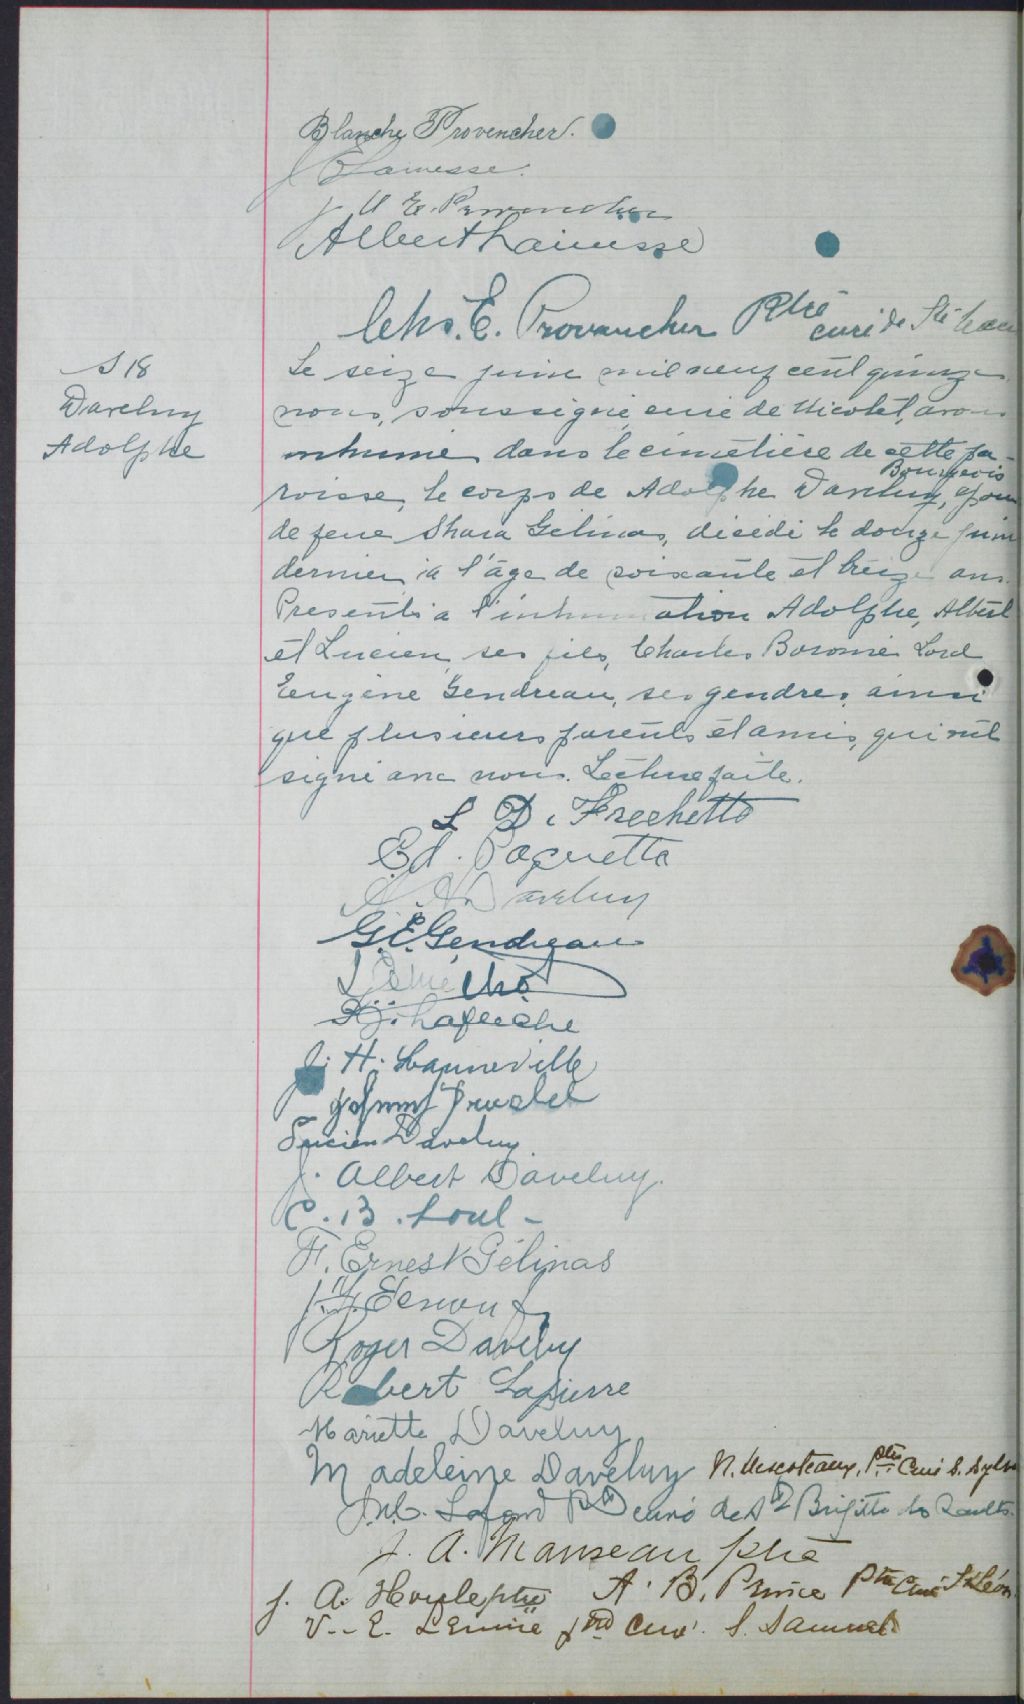 Blanche Provencher.
J E Lainesse.
J U E. Provencher
Albert Lainesse
Chs. E. Provancher Ptre
curé de Ste
S 18
Daveluy
Adolphe
Le seize juin mil neuf cent quinze
nous, soussigné, curé de Nicolet, avons
inhumé dans le cimetière de cette pa-
roisse, le corps de Adolphe Daveluy, Bourgeois, époux
de feue Shara Gélinas, décédé le douze juin
dernier à l'âge de soixante et treize ans.
Présents à l'inhumation Adolphe, Albert
et Lucien, ses fils, Charles Boromé Lord
Eugène Gendreau, ses gendres, ainsi
que plusieurs parents et amis, qui ont
signé avec nous. Lecture faite.
L D. Frechette
Ed. Paquette
A. Daveluy
G. E. Gendreau
J. Lafleche
J. H. Hanneville
Johnny Trudel
Lucien Daveluy
J. Albert Daveluy.
C. B. Lord -
F. Ernest Gélinas
Roger Daveluy
Robert Lapierre
Mariette Daveluy
Madeleine Daveluy N. Descoteaux, Ptre Curé S. Sylv
Lafond Ptre curé de Ste Brigitte des Saults.
J. A. Manseau ptre
J. A. Houle ptre A. B. Prince Ptre Curé St Léon.
V. E. Lemire ptre Curé S. Samuel